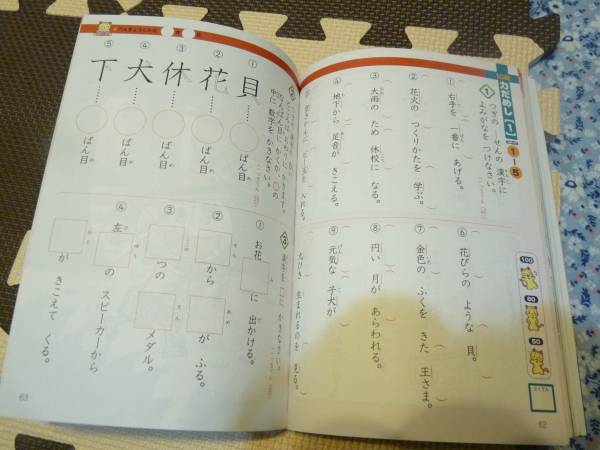 力だめし[1]
1-5
1 つぎの せんの 漢字に
よみがなを つけなさい。
① 右手を 一番に あげる。
② 花火の つくりかたを 学ぶ。
③ 大雨の ため 休校に なる。
④ 地下から 足音が きこえる。
⑥ 花びらの ような 貝。
⑦ 金色の ふくを きた 王さま。
⑧ 円い 月が あらわれる。
⑨ 元気な 子犬が
生まれるのを 見る。
100
80
50
62
中に 数字を かきなさい。
① 貝 ばん目
② 花 ばん目
③ 休 ばん目
④ 犬 ばん目
⑤ 下 ばん目
3 漢字を かきなさい。
① お花 に 出かける。
② から が ふる。
③ つの メダル。
④ 左の スピーカーから
が きこえて くる。
63